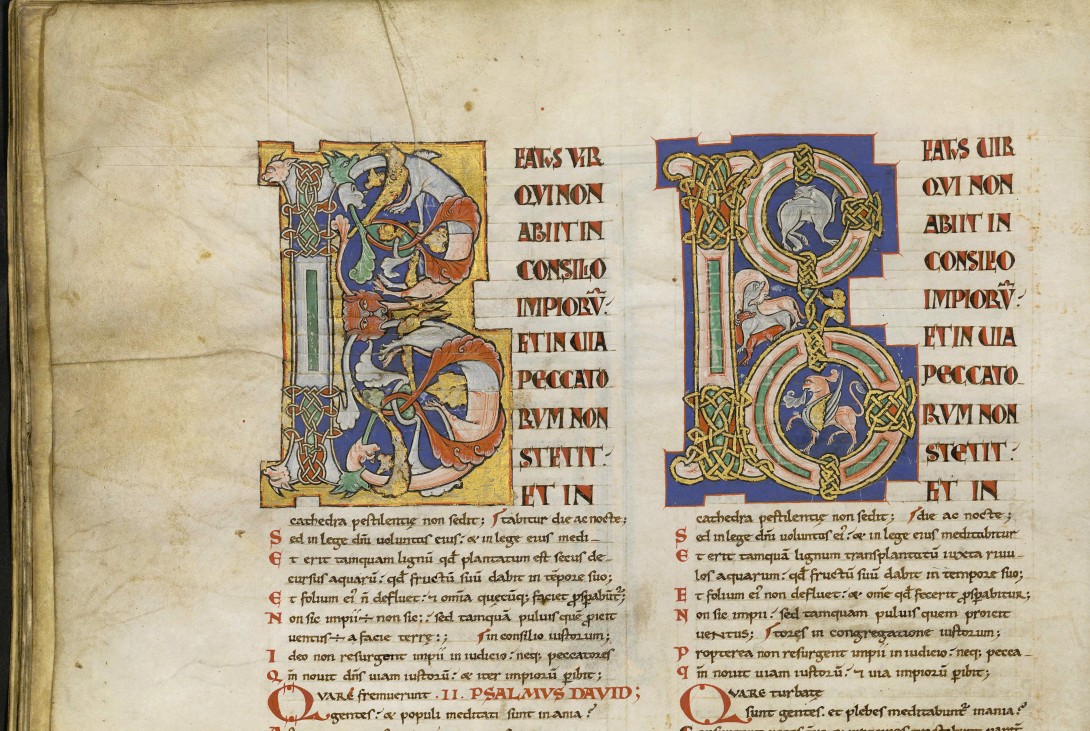 BEATVS VIR
QVI NON
ABIIT IN
CONSILIO
IMPIORV̅:
ET IN VIA
PECCATO
RVM NON
STETIT:
ET IN
cathedra pestilentię non sedit; / tabitur die ac nocte;
Sed in lege dn̅i voluntas eius: & in lege eius medi-
Et erit tamquam lignu̅ qd̅ plantatum est secus de-
cursus aquaru̅: qd̅ fructu̅ suu̅ dabit in te̅pore suo;
Et folium ei' n̅ defluet: & omnia quęcu̅q; faciet p̅sp̅abu̅t';
Non sic impii ÷ non sic:; sed tamqua̅ puluis que̅ p̅icit
uentus ÷ a facie terrę:; / in consilio iustorum;
Ideo non resurgent impii in iudicio: neq; peccatores
Qm̅ nouit dn̅s uiam iustoru̅: & iter impioru̅ p̅ibit;
QVARE fremuerunt .II. PSALMVS DAVID;
gentes: & populi meditati sunt inania?
BEATVS UIR
QVI NON
ABIIT IN
CONSILIO
IMPIORV̅:
ET IN UIA
PECCATO
RVM NON
STETIT:
ET IN
cathedra pestilentię non sedit; / die ac nocte;
Sed in lege dn̅i voluntas ei': & in lege eius meditabitur
Et erit tamqua̅ lignum transplantatu̅ iuxta riuu-
los aquarum: qd̅ fructu̅ suu̅ dabit in tempore suo;
Et folium ei' non defluet: & om̅e qd̅ fecerit p̅sp̅abitur;
Non sic impii: sed tamquam puluis quem proicit
uentus; / tores in congregatione iustorum;
Propterea non resurgent impii in iudicio: neq; pecca-
Qm̅ nouit uiam iustoru̅: & uia impiorum p̅ibit;
QVARE turbate
sunt gentes. et plebes meditabunt' inania?